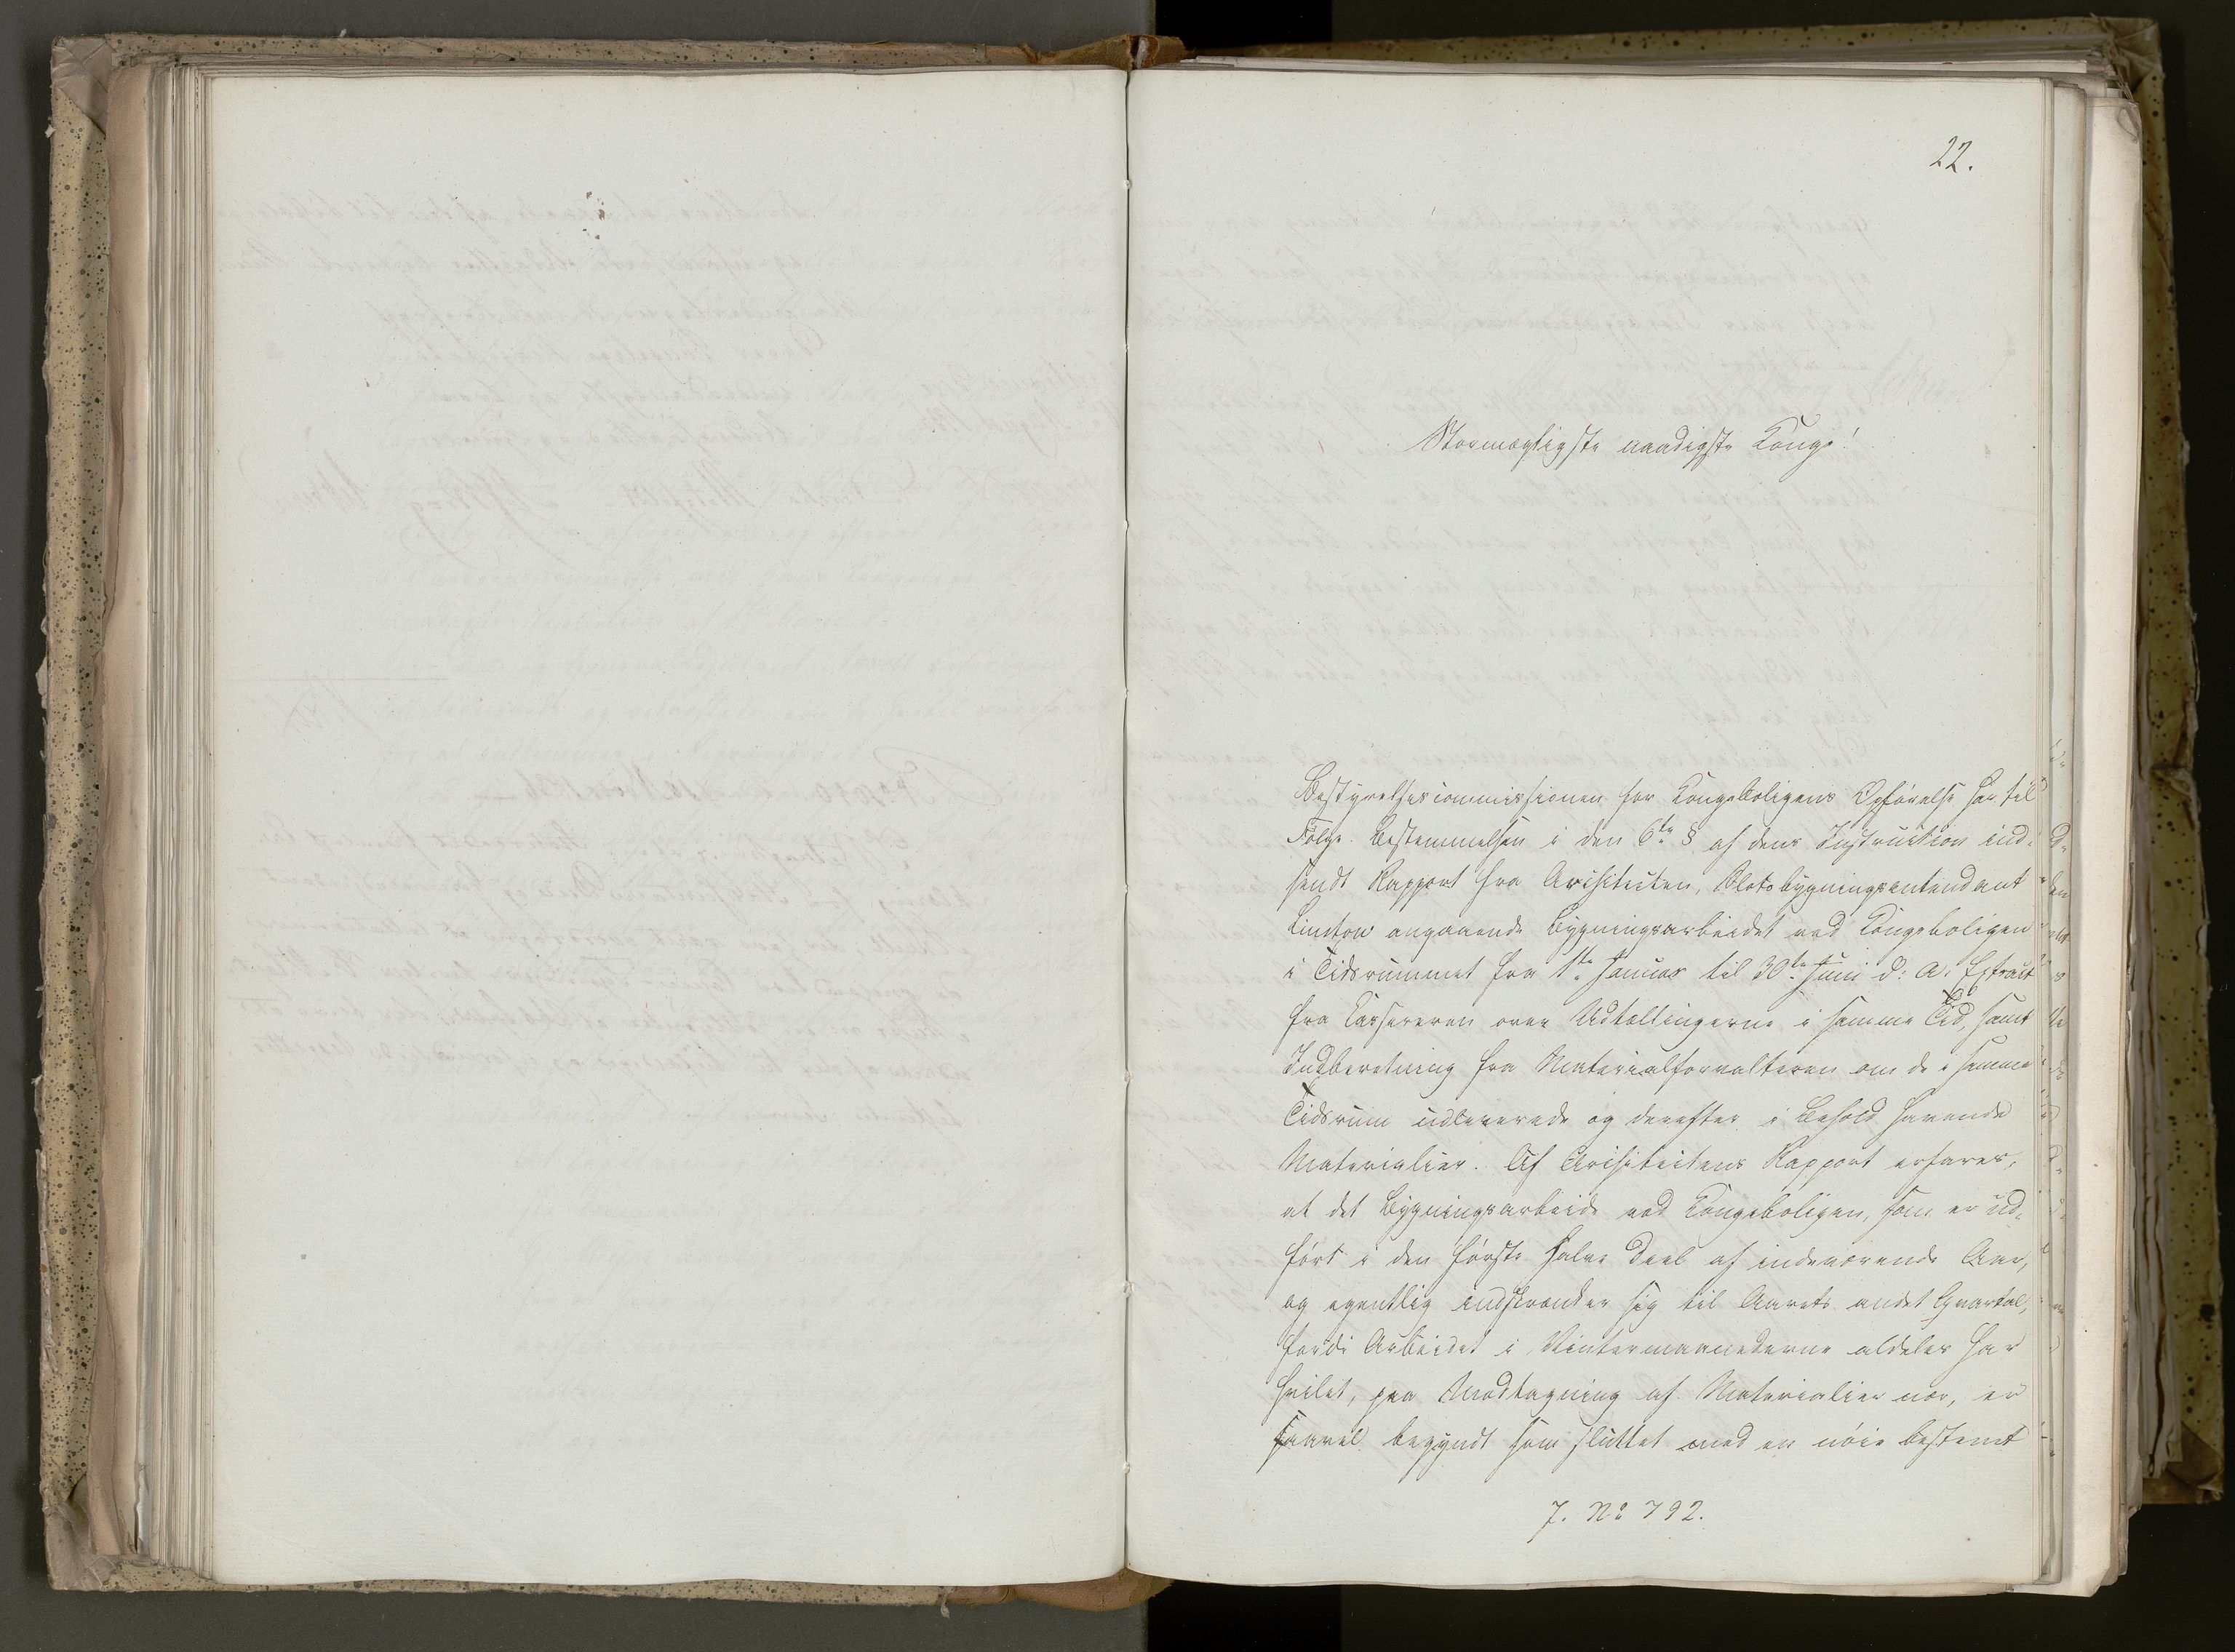 22.
Stormægtigste naadigste Konge!
Bestyrelsescommissionen for Kongeboligens Opførelse har til
Følge Bestemmelsen i den 6te § af dens Instruction ind-
sendt Rapport fra Architecten, Slotsbygningsintendant
Linstow angaaende Bygningsarbeidet ved Kongeboligen
i Tidsrummet fra 1ste Januar til 30te Juni d: A: Extract
fra Kassereren over Udtællingerne i samme Tid, samt
Indberetning fra Materialforvalteren om de i samme
Tidsrum udleverede og derefter i Behold havende
Materialier. Af Architectens Rapport erfares,
at det Bygningsarbeide ved Kongeboligen, som er ud-
ført i den første halve Deel af indeværende Aar,
og egentlig indskrænker sig til Aarets andet Qvartal,
fordi Arbeidet i Vintermaanederne aldeles har
hvilet, paa Modtagning af Materialier nær, er
saavel begyndt som sluttet med en nöie bestemt
7. No 792.